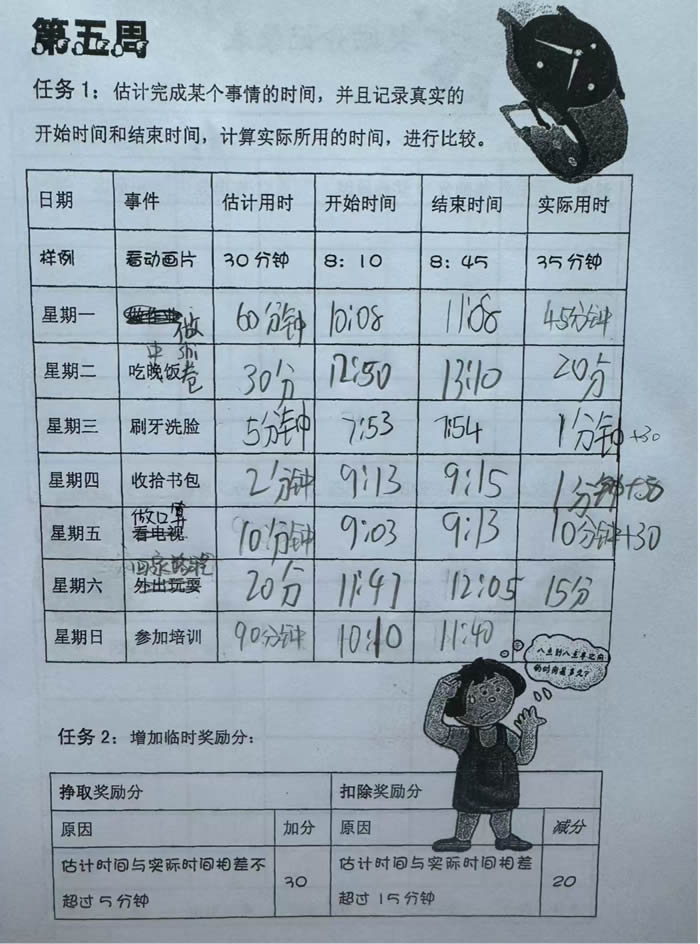 第五周
任务1：估计完成某个事情的时间，并且记录真实的
开始时间和结束时间，计算实际所用的时间，进行比较。
日期 事件 估计用时 开始时间 结束时间 实际用时
样例 看动画片 30分钟 8：10 8：45 35分钟
星期一 做 60分钟 10:08 11:08 45分钟
星期二 吃晚饭 卷 30分 12:50 13:10 20分
星期三 刷牙洗脸 5分钟 7:53 7:54 1分钟+30
星期四 收拾书包 2分钟 9:13 9:15 1分钟+30
做口算
星期五 看电视 10分钟 9:03 9:13 10分钟+30
回家
星期六 外出玩耍 20分 11:47 12:05 15分
星期日 参加培训 90分钟 10:10 11:40
八点到八点半之间
的时间是多久？
任务2：增加临时奖励分：
挣取奖励分 扣除奖励分
原因 加分 原因 减分
估计时间与实际时间相差不 估计时间与实际时间相差
超过5分钟 30 超过15分钟 20